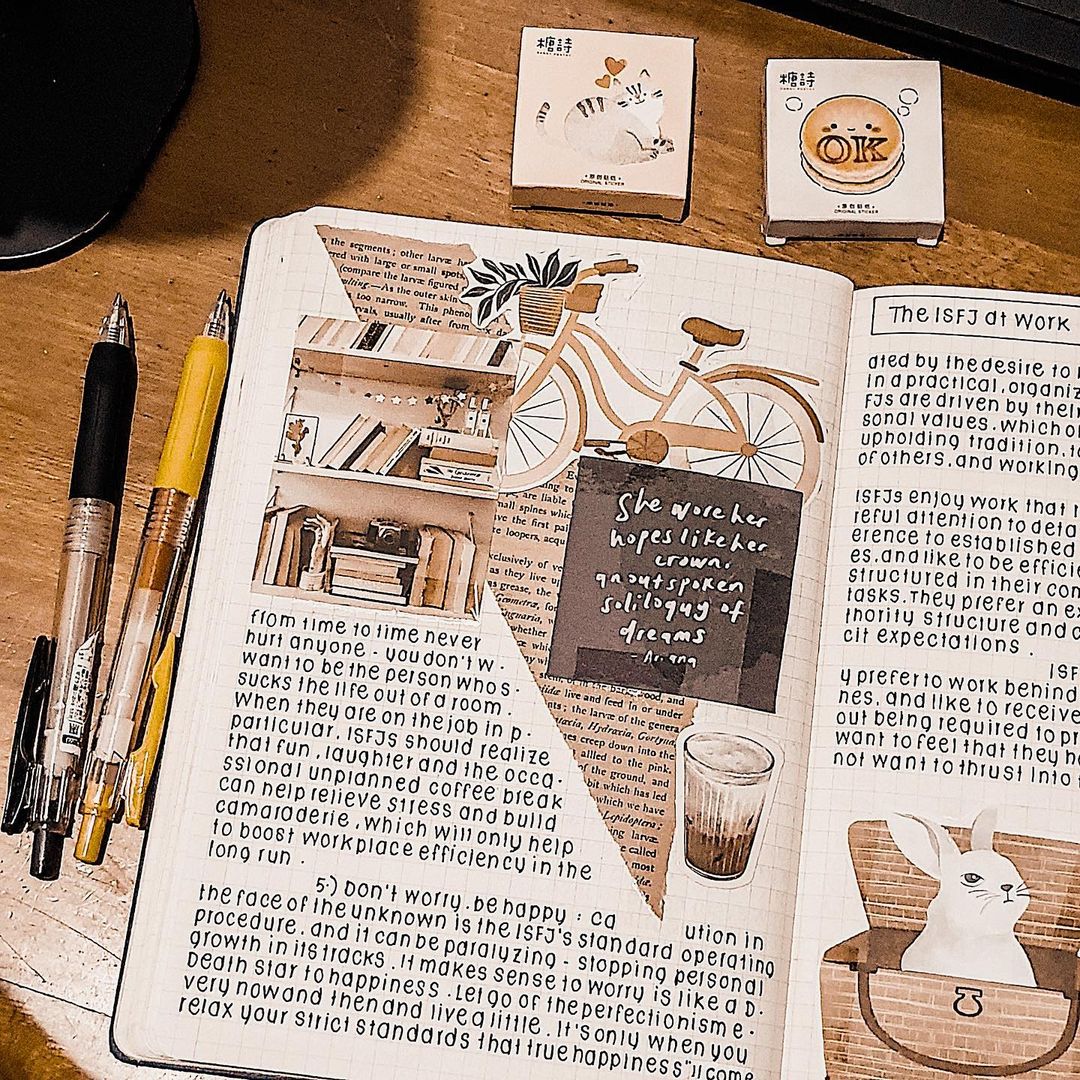 糖詩
原创贴纸
ORIGINAL STICKER
糖詩
OK
原创贴纸
ORIGINAL STICKER
n the segments; other larvæ h
red with large or small spots
(compare the larvæ figured
.—As the outer skin
too narrow. This pheno
rvals, usually after
from time to time never
hurt anyone - you don't w-
want to be the person who s-
sucks the life out of a room.
when they are on the job in p-
particular, ISFJs should realize
that fun, laughter and the occa-
ssional unplanned coffee break
can help relieve stress and build
camaraderie, which will only help
to boost workplace efficiency in the
long run.
are liable
small spines which
ve the first pai
loopers, acqu
xclusively of
as they live up
s grease, the
Geometræ, for
whether
She wore her
hopes like her
crown,
an outspoken
soliloquy of
dreams
- Ariana
stem, or in the bark, wood, and
live and feed in or under
ts; the larvæ of the genera
Hydraxia, Gortyna
mes creep down into the
allied to the pink.
of the ground, and
bit which has led
which we have
Lepidoptera;
larvæ
called
most
5.) Don't worry, be happy : ca ution in
the face of the unknown is the ISFJ's standard operating
procedure, and it can be paralyzing - stopping personal
growth in its tracks. It makes sense to worry is like a D-
Death Star to happiness. Let go of the perfectionism e-
very now and then and live a little. It's only when you
relax your strict standards that true happiness'll come
The ISFJ at Work
ated by the desire to
in a practical, organiz
FJs are driven by their
sonal values, which o
upholding tradition, t
of others, and working
ISFJs enjoy work that r
reful attention to deta
erence to established
es, and like to be efficie
structured in their con
tasks. They prefer an ex
thority structure and c
cit expectations.
ISF
y prefer to work behind
nes, and like to receive
out being required to pr
want to feel that they h
not want to thrust into